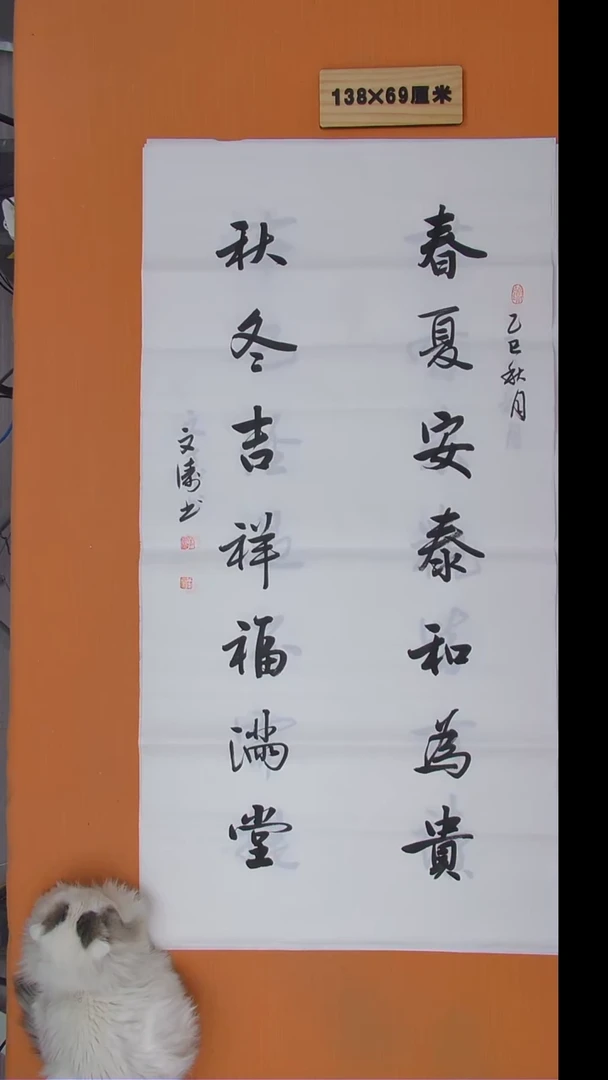 138×69厘米
乙巳秋月
春夏安泰和為貴
秋冬吉祥福滿堂
文濤书